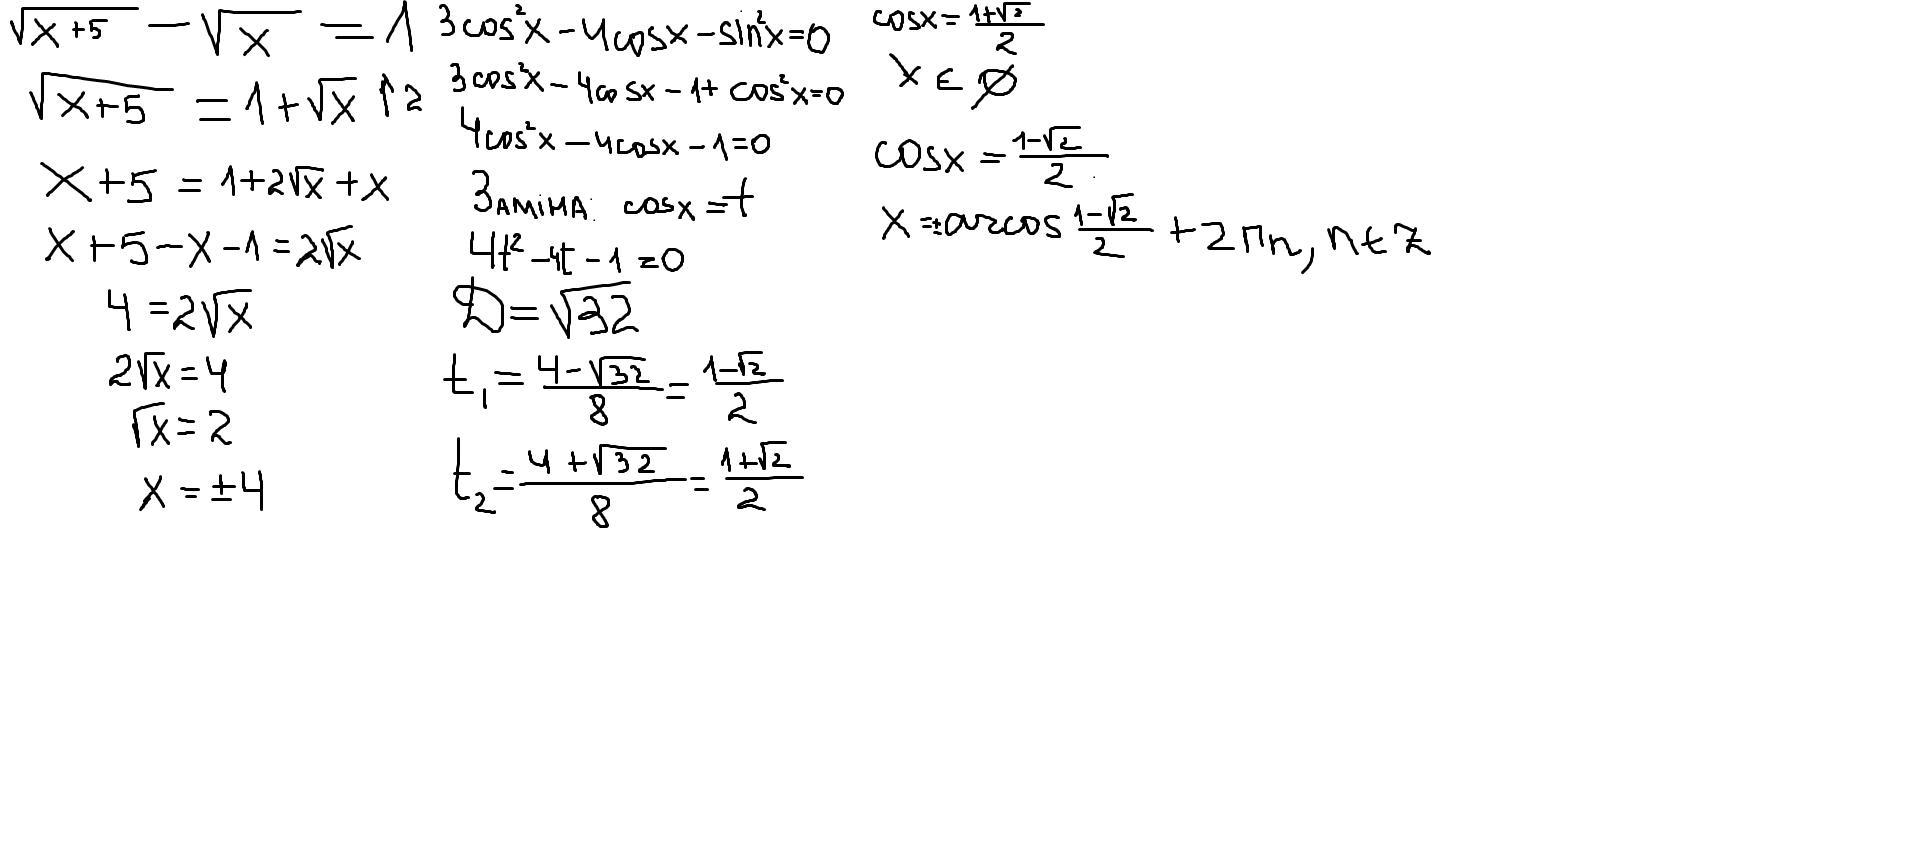 √x+5 − √x = 1
√x+5 = 1+√x ↑2
x+5 = 1+2√x+x
x+5−x−1=2√x
4 =2√x
2√x=4
√x=2
x=±4
3cos²x−4cosx−sin²x=0
3cos²x−4cosx−1+cos²x=0
4cos²x−4cosx−1=0
Заміна: cosx=t
4t²−4t−1=0
D=√32
t₁ = (4−√32)/8 = (1−√2)/2
t₂ = (4+√32)/8 = (1+√2)/2
cosx = (1+√2)/2
x ∈ ∅
cosx = (1−√2)/2
x=±arccos (1−√2)/2 +2πn, n∈Z